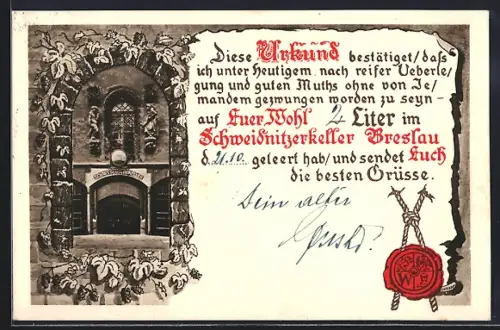 Diese Urkund bestätiget/daſs
ich unter Heutigem nach reifer Ueberle/
gung und guten Muths ohne von Je/
mandem gezwungen worden zu seyn-
auf Euer Wohl 2 Liter im
Schweidnitzerkeller Breslau
d. 21.10. geleert hab/und sendet Euch
die besten Grüsse.
Dein alter